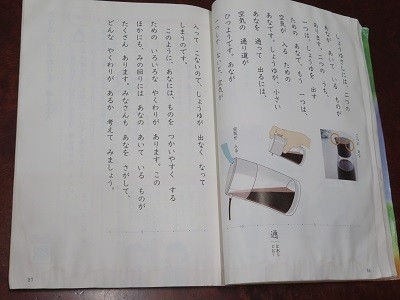 しょうゆさしには、二つの
あなが あいて いる ものが
あります。二つの うち、
一つは、しょうゆを 出す
ための あなで、もう 一つは、
空気が 入る ための
あなです。しょうゆが、小さい
あなを 通って 出るには、
空気の 通り道が
ひつようです。あなが
入って こないので、しょうゆが 出なく なって
しまうのです。
このように、あなには、ものを つかいやすく する
ための いろいろな やくわりが あります。この
ほかにも、みの回りには あなの あいて いる ものが
たくさん あります。みなさんも あなを さがして、
どんな やくわりが あるか 考えて みましょう。
空気
通